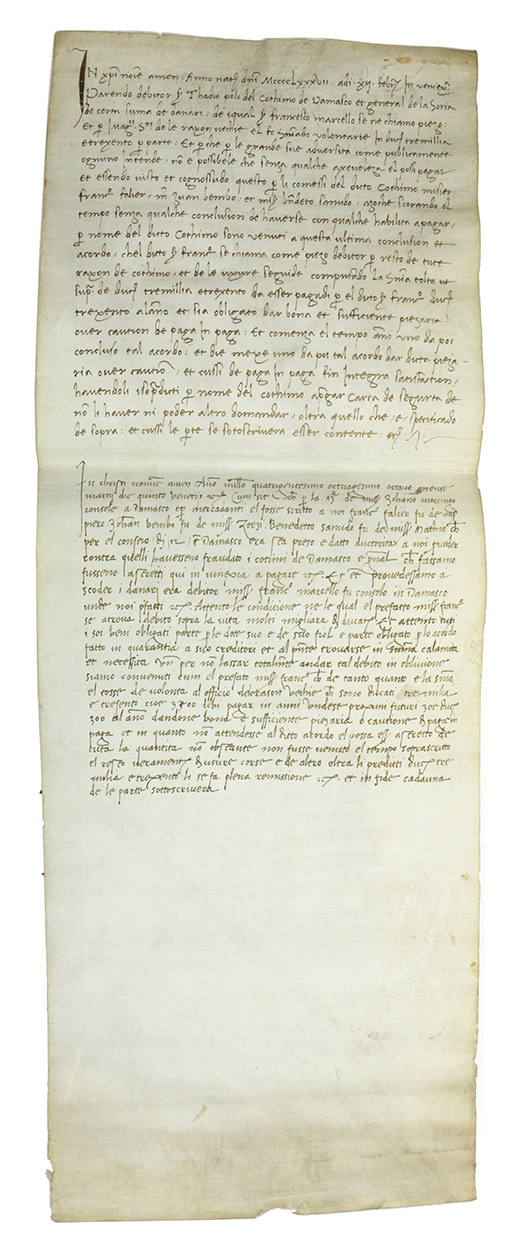 IN xpi noīe amen: Anno natis dnī MccccLxxxvii adi xij febr In venetia
Parendo debitor ŷ Thadio polo del Cothimo de Damasco et general de la Soria
de certa suma de danari: de iqual ŷ francesco marcello se ne chiamo piezo:
et p del le raxon vechie el fo voluntarie In duč tremillia
e trexento p parte: Et p che p le grande sue adversita come publicamente
ognuno intende: nō e possibele che senza qualche axevileza el possi pagar
et essendo visto et cognossudo questo p li comessi del dito Cothimo miser
franco falier, m̄ Zuan bembo, et mis bndeto sanudo, azoche scorando el
tempo senza qualche conclusion de haverse con qualche habilita apagar,
p nome del dito Cothimo sono venuti a questa ultima conclusion et
acordo, chel dito ŷ franco se chiama come piezo debitor p resto de tute
raxon de cothimo, et de le uxure seguide computado La Sma tolta ut
supra de duč tremilia e trexento da esser pagadi p el dito ŷ franco duč
trexento alano et sia obligato dar bona et sufficiente piezaria
over caution de paga In paga: Et comenza el tempo ano uno da poi
concluso tal acordo: et die meze uno da poi tal acordo dar dicta pieza
ria over caution, et cussi de paga In paga fin Integra satisfaction,
havendoli isopraditi p nome del cothimo apagar Carta de segurta de
nō li haver ni poder altro domandar, oltra quello che, e, specificado
de sopra: et cussi le parte se sotoscrivera esser contente

In christi nomine amen Anno millo quatrigentesimo octuagesimo octavo mense
martij die quinto veneti Cum sit p la de miss Zohano mocenigo
consolo a Damasco cp mercadanti el fosse scritto a noi franco falier fu de
piero Zohan bembo fu de miss Zorzi Benedetto sanudo fu de miss Mathio
per el consero di 12 Damasco era sta preso e datto auctorita a noi poder
contra quelli havesseno fraudato i cotimi de Damasco fassamo
fusseno i astretti qui in vinexia a pagare et provedessamo a
scoder i danari era debitor miss franco marcello fu consolo in Damasco
unde noi pfatti Attento le condicione ne le qual el prefatto miss franco
se atrova i debito sopra la vita molti migliara de ducati attento tuti
i soi beni obligati parte p le dote suo e de suo fiol e parte obligato p lo acordo
fatto in quarantia a suo creditori et al pnte trovarse in calamita
et necessita per no lassar totalmente andar tal debito in oblivione
siamo convenuti cum el prefato miss franco de tanto quanto e la sma
el tosse de volonta al officio de le rason vechie sono ducati tremilia
e tresento cioe 3300 debi pagar in anni undese proximi futuri zoe duc
300 al ano dandone bona e sufficiente piezaria o cautione de paga in
paga et in quanto nō attendesse al ditto acordo el possa ess astretto de
tuta la quantita nō obstante non fusse venuto el tempo soprascritto
el resto veramente de usure corse e de altro oltra li preditti duc tre
milia e trexento li se fa plena remissione et in fede cadauna
de le parte sottoscrivera